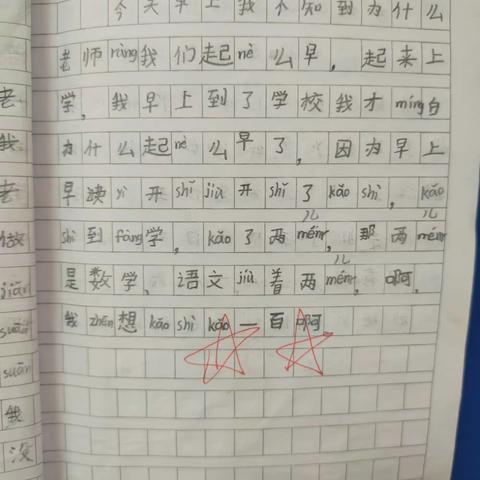 今天早上我不知到为什么
老师ràng我们起nè么早，起来上
学，我早上到了学校我才míng白
为什么起nè么早了，因为早上
早读yi开shǐ jiù开shǐ了kǎo shì，kǎo
shì到fàng学，kǎo了两ménr，那两ménr
是数学，语文jiù着两ménr，啊，
我zhēn想kǎo shì kǎo一百啊
老
我
老
做
jiǎn
suàn
suàn
我
没